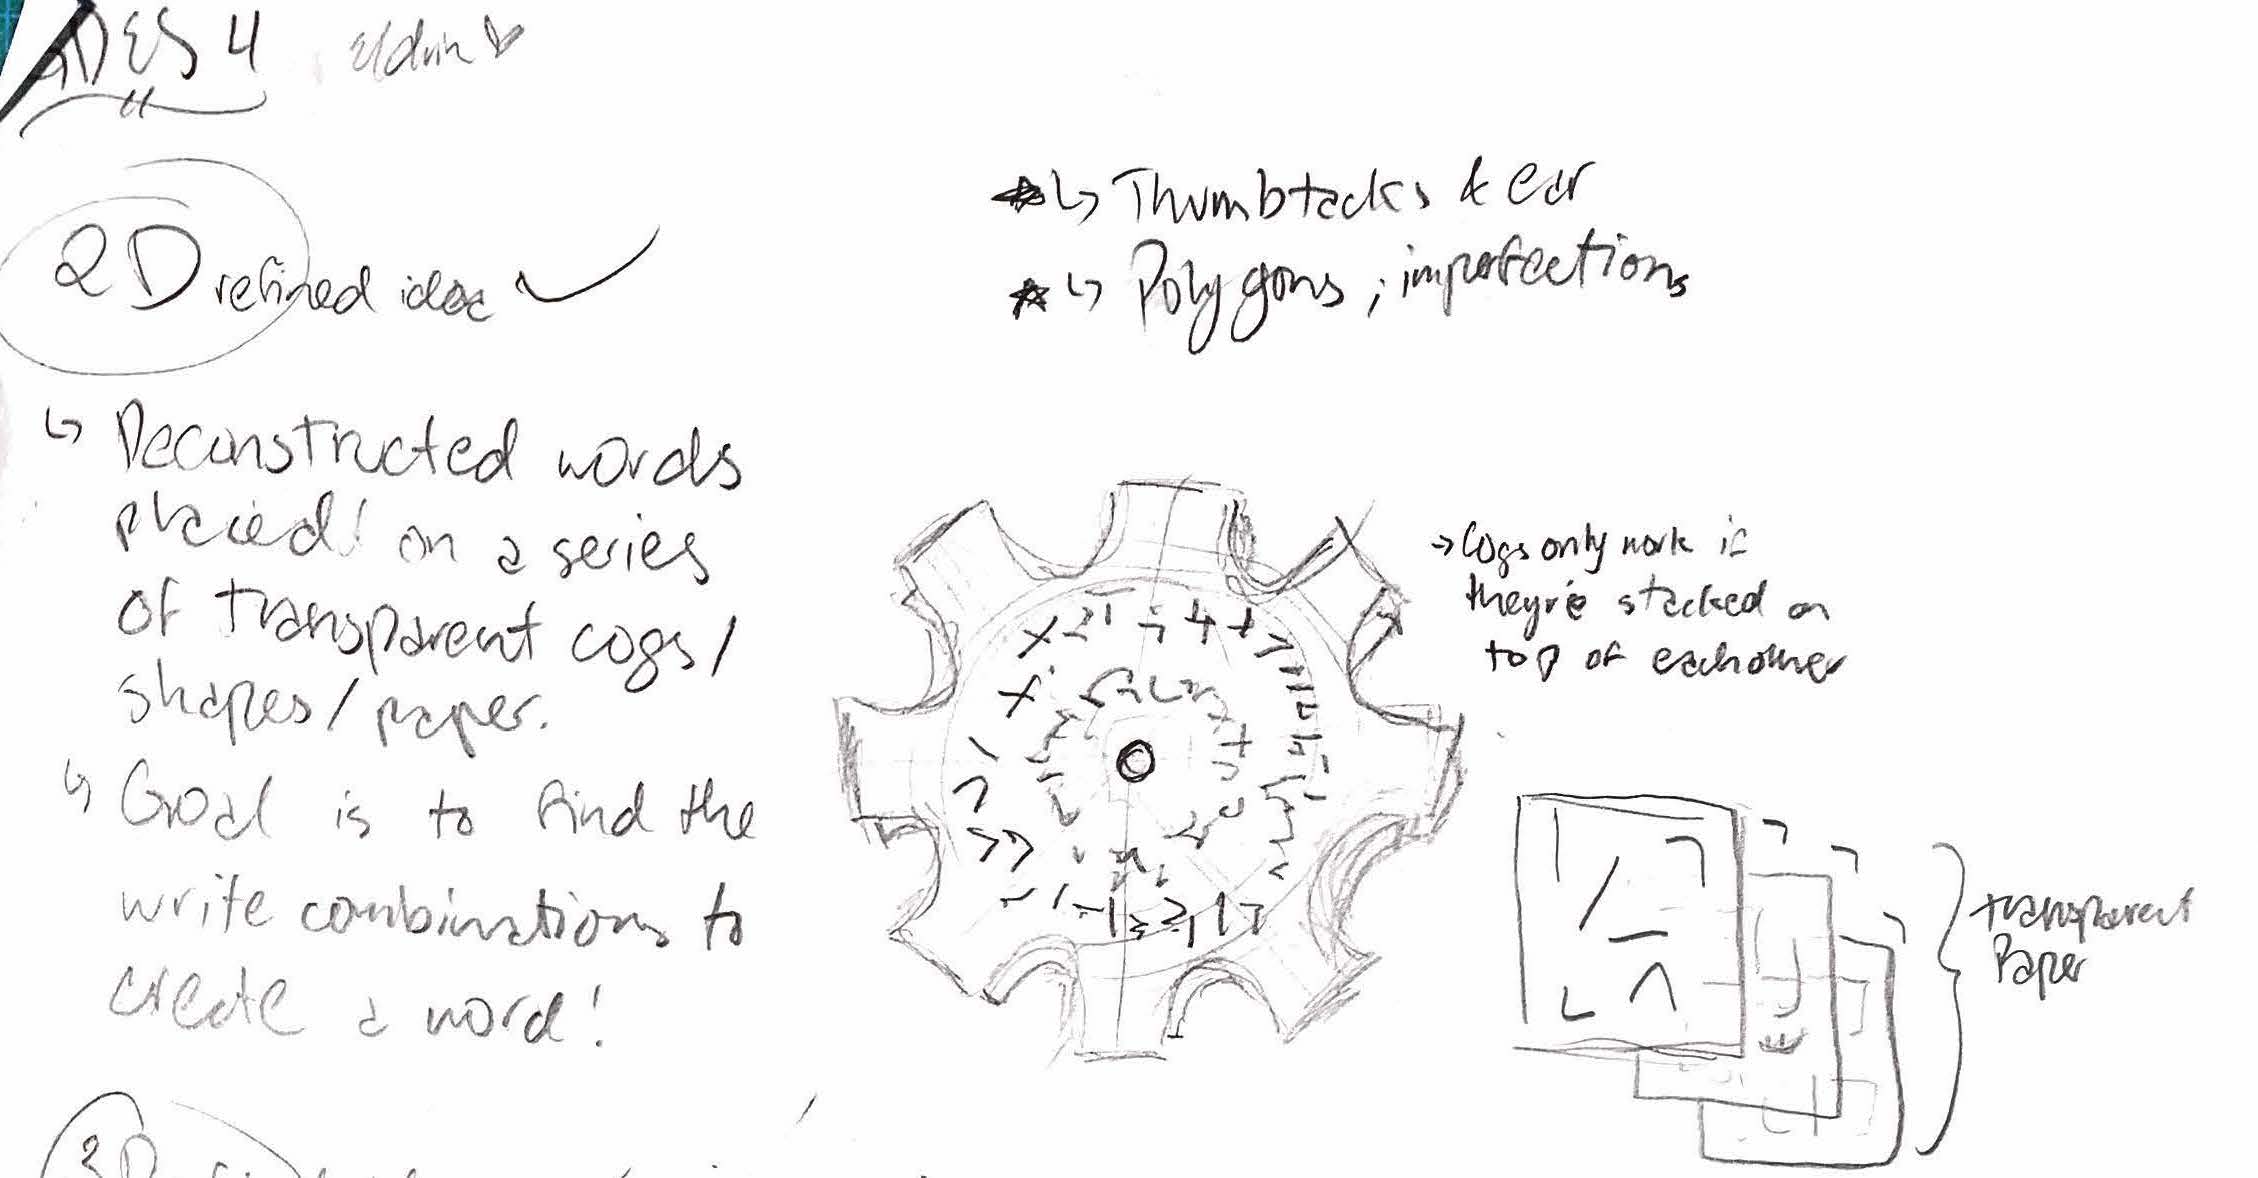 DES 4
2D refined idea
↳ Thumbtacks & ear
↳ Polygons ; imperfections
↳ Deconstructed words
placed! on a series
of transparent cogs/
shapes/paper.
↳ Goal is to find the
write combinations to
create a word!
→ Cogs only work if
they're stacked on
top of eachother
transparent
Paper
3D